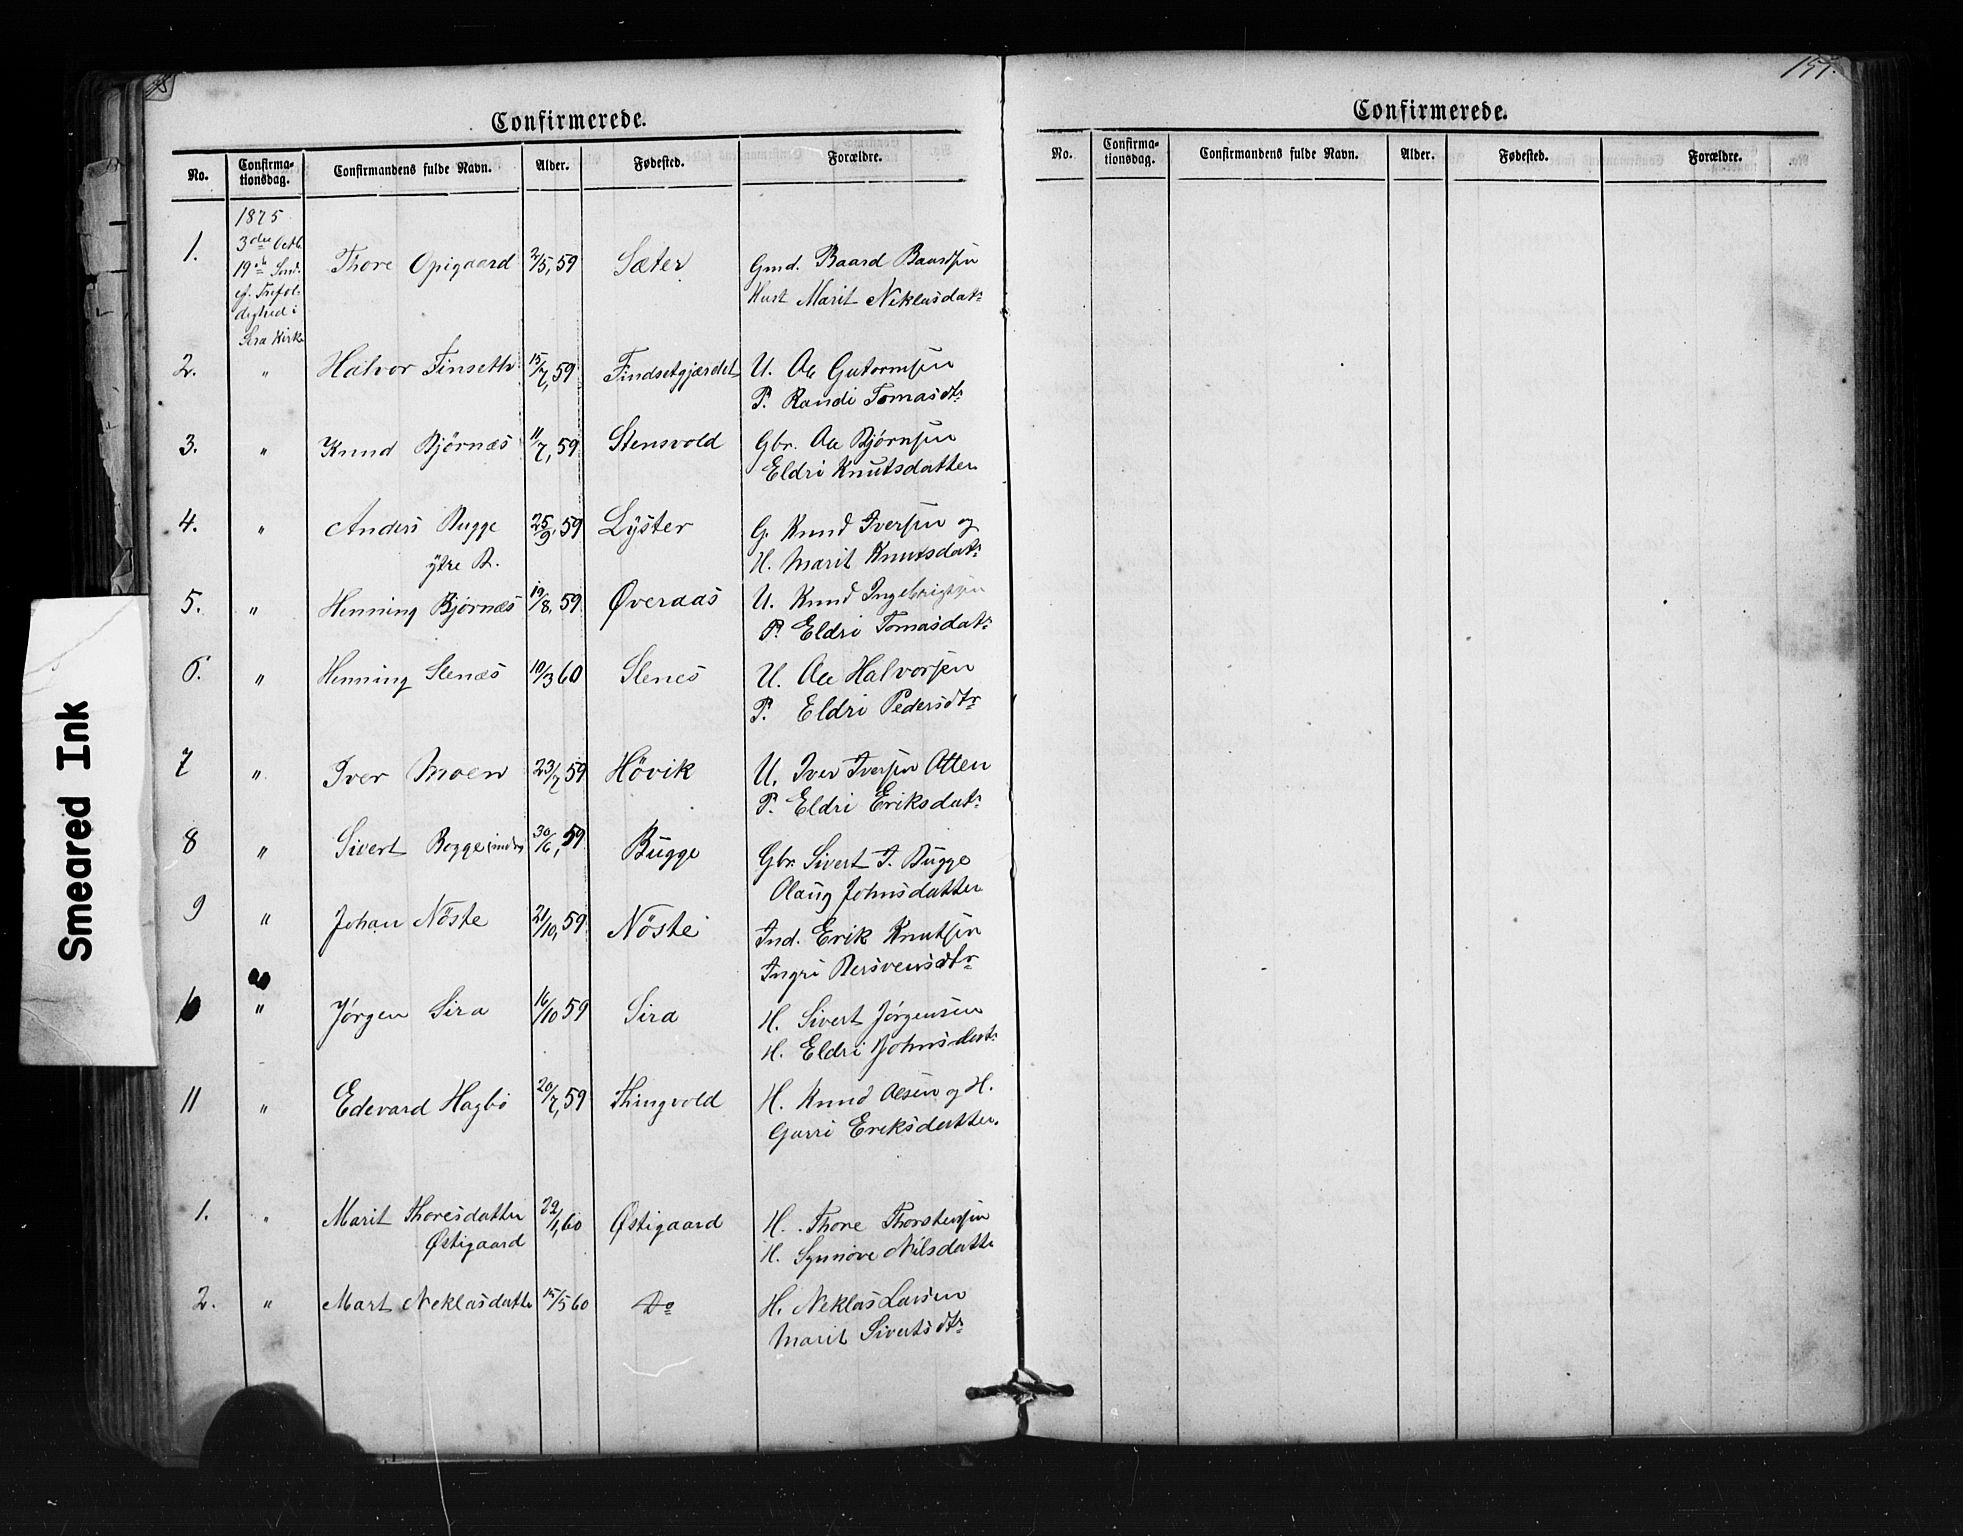 155.
Confirmerede.
No. Confirma-tionsdag. Confirmandens fulde Navn. Alder. Fødested. Forældre.
1875
3die Octb.
19de Sønd.
ef. Trefol-
dighed i
Sira Kirke
1. Thore Opigaard 2/5, 59 Sæter Gmd. Baard Baardsen
Hust Marit Neklasdatr
2. " Halvor Finseth 15/7, 59 Findsetgjærdet U. Ae Gutormsen
P. Randi Tomasdtr
3. " Knud Bjørnæs 11/7, 59 Stensvold Gbr. Ae Bjørnsen
Eldri Knutsdatter
4. " Anders Bugge 25/9, 59 Lyster G. Knud Iversen og
ytre B. H. Marit Knutsdatr
5. " Henning Bjørnæs 19/8, 59 Øveraas U. Knud Ingebrigtsen
P. Eldri Tomasdatr
6. " Henning Slenæs 10/3 60 Slenes U. Ae Halvorsen
P. Eldri Pedersdtr
7 " Iver Moen 23/7 59 Hövik U. Iver Iversen Atten
P. Eldri Eriksdatr
8 " Sivert Bogge 30/6, 59 Bugge Gbr. Sivert I. Bugge
Olaug Johnsdatter
9 " Johan Nöste 21/10, 59 Nöste Ind. Erik Knutsen
Ingri Bersvensdtr
10 " Jørgen Sira 16/10 59 Sira H. Sivert Jørgensen
H. Eldri Johnsdatr
11 " Edevard Hagbö 20/7, 59 Thingvold H. Knud Aesen og H.
Gurri Eriksdatter.
1. " Marit Thoresdatter 22/1, 60 Østigaard H. Thore Thorstensen
Østigaard H. Synnöve Nilsdatte
2. " Mart Neklasdatte 15/5 60 Do H. Neklas Larsen
Marit Sivertsdtr
Confirmerede.
No. Confirma-tionsdag. Confirmandens fulde Navn. Alder. Fødested. Forældre.
Smeared Ink